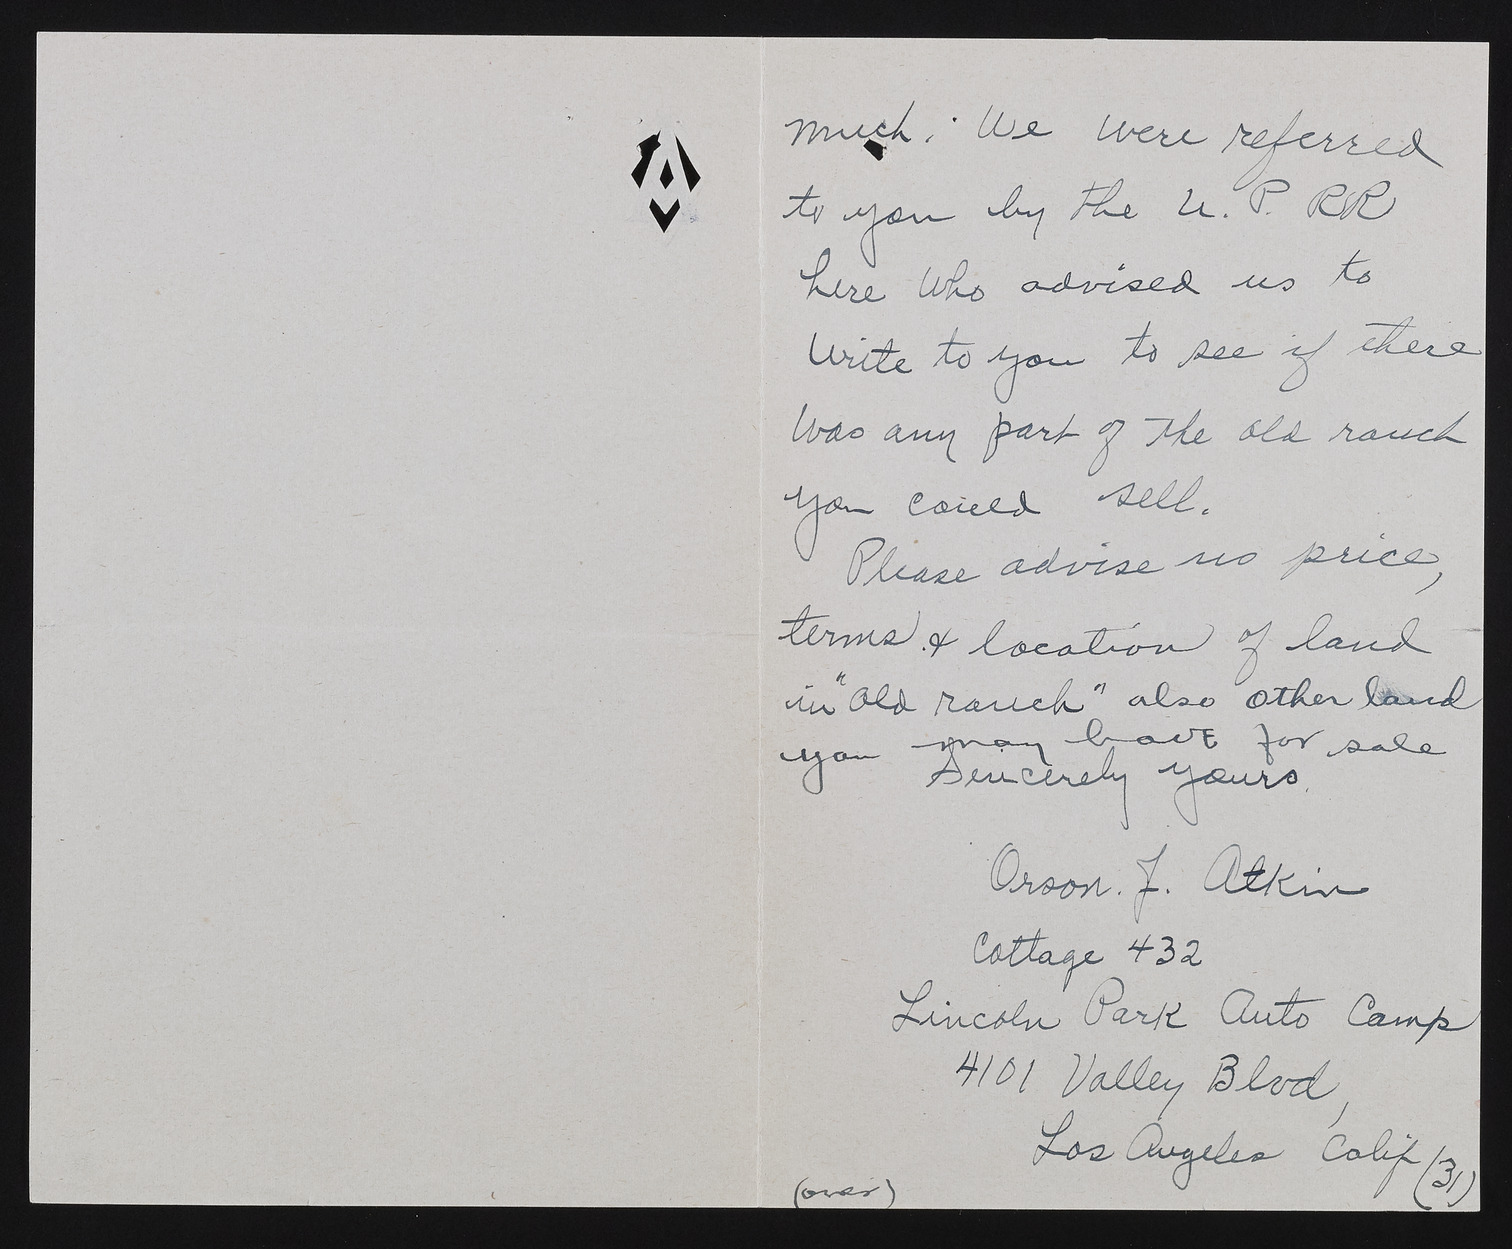 much. We were referred
to you by the U. P. RR
here who advised us to
write to you to see if there
was any part of the old ranch
you could sell.
Please advise us price,
terms & location of land
in "old ranch" also other land
you may have for sale
Sincerely yours.
Orson. J. Atkin
Cottage 432
Lincoln Park Auto Camp
4101 Valley Blvd,
Los Angeles Calif (31)
(over)